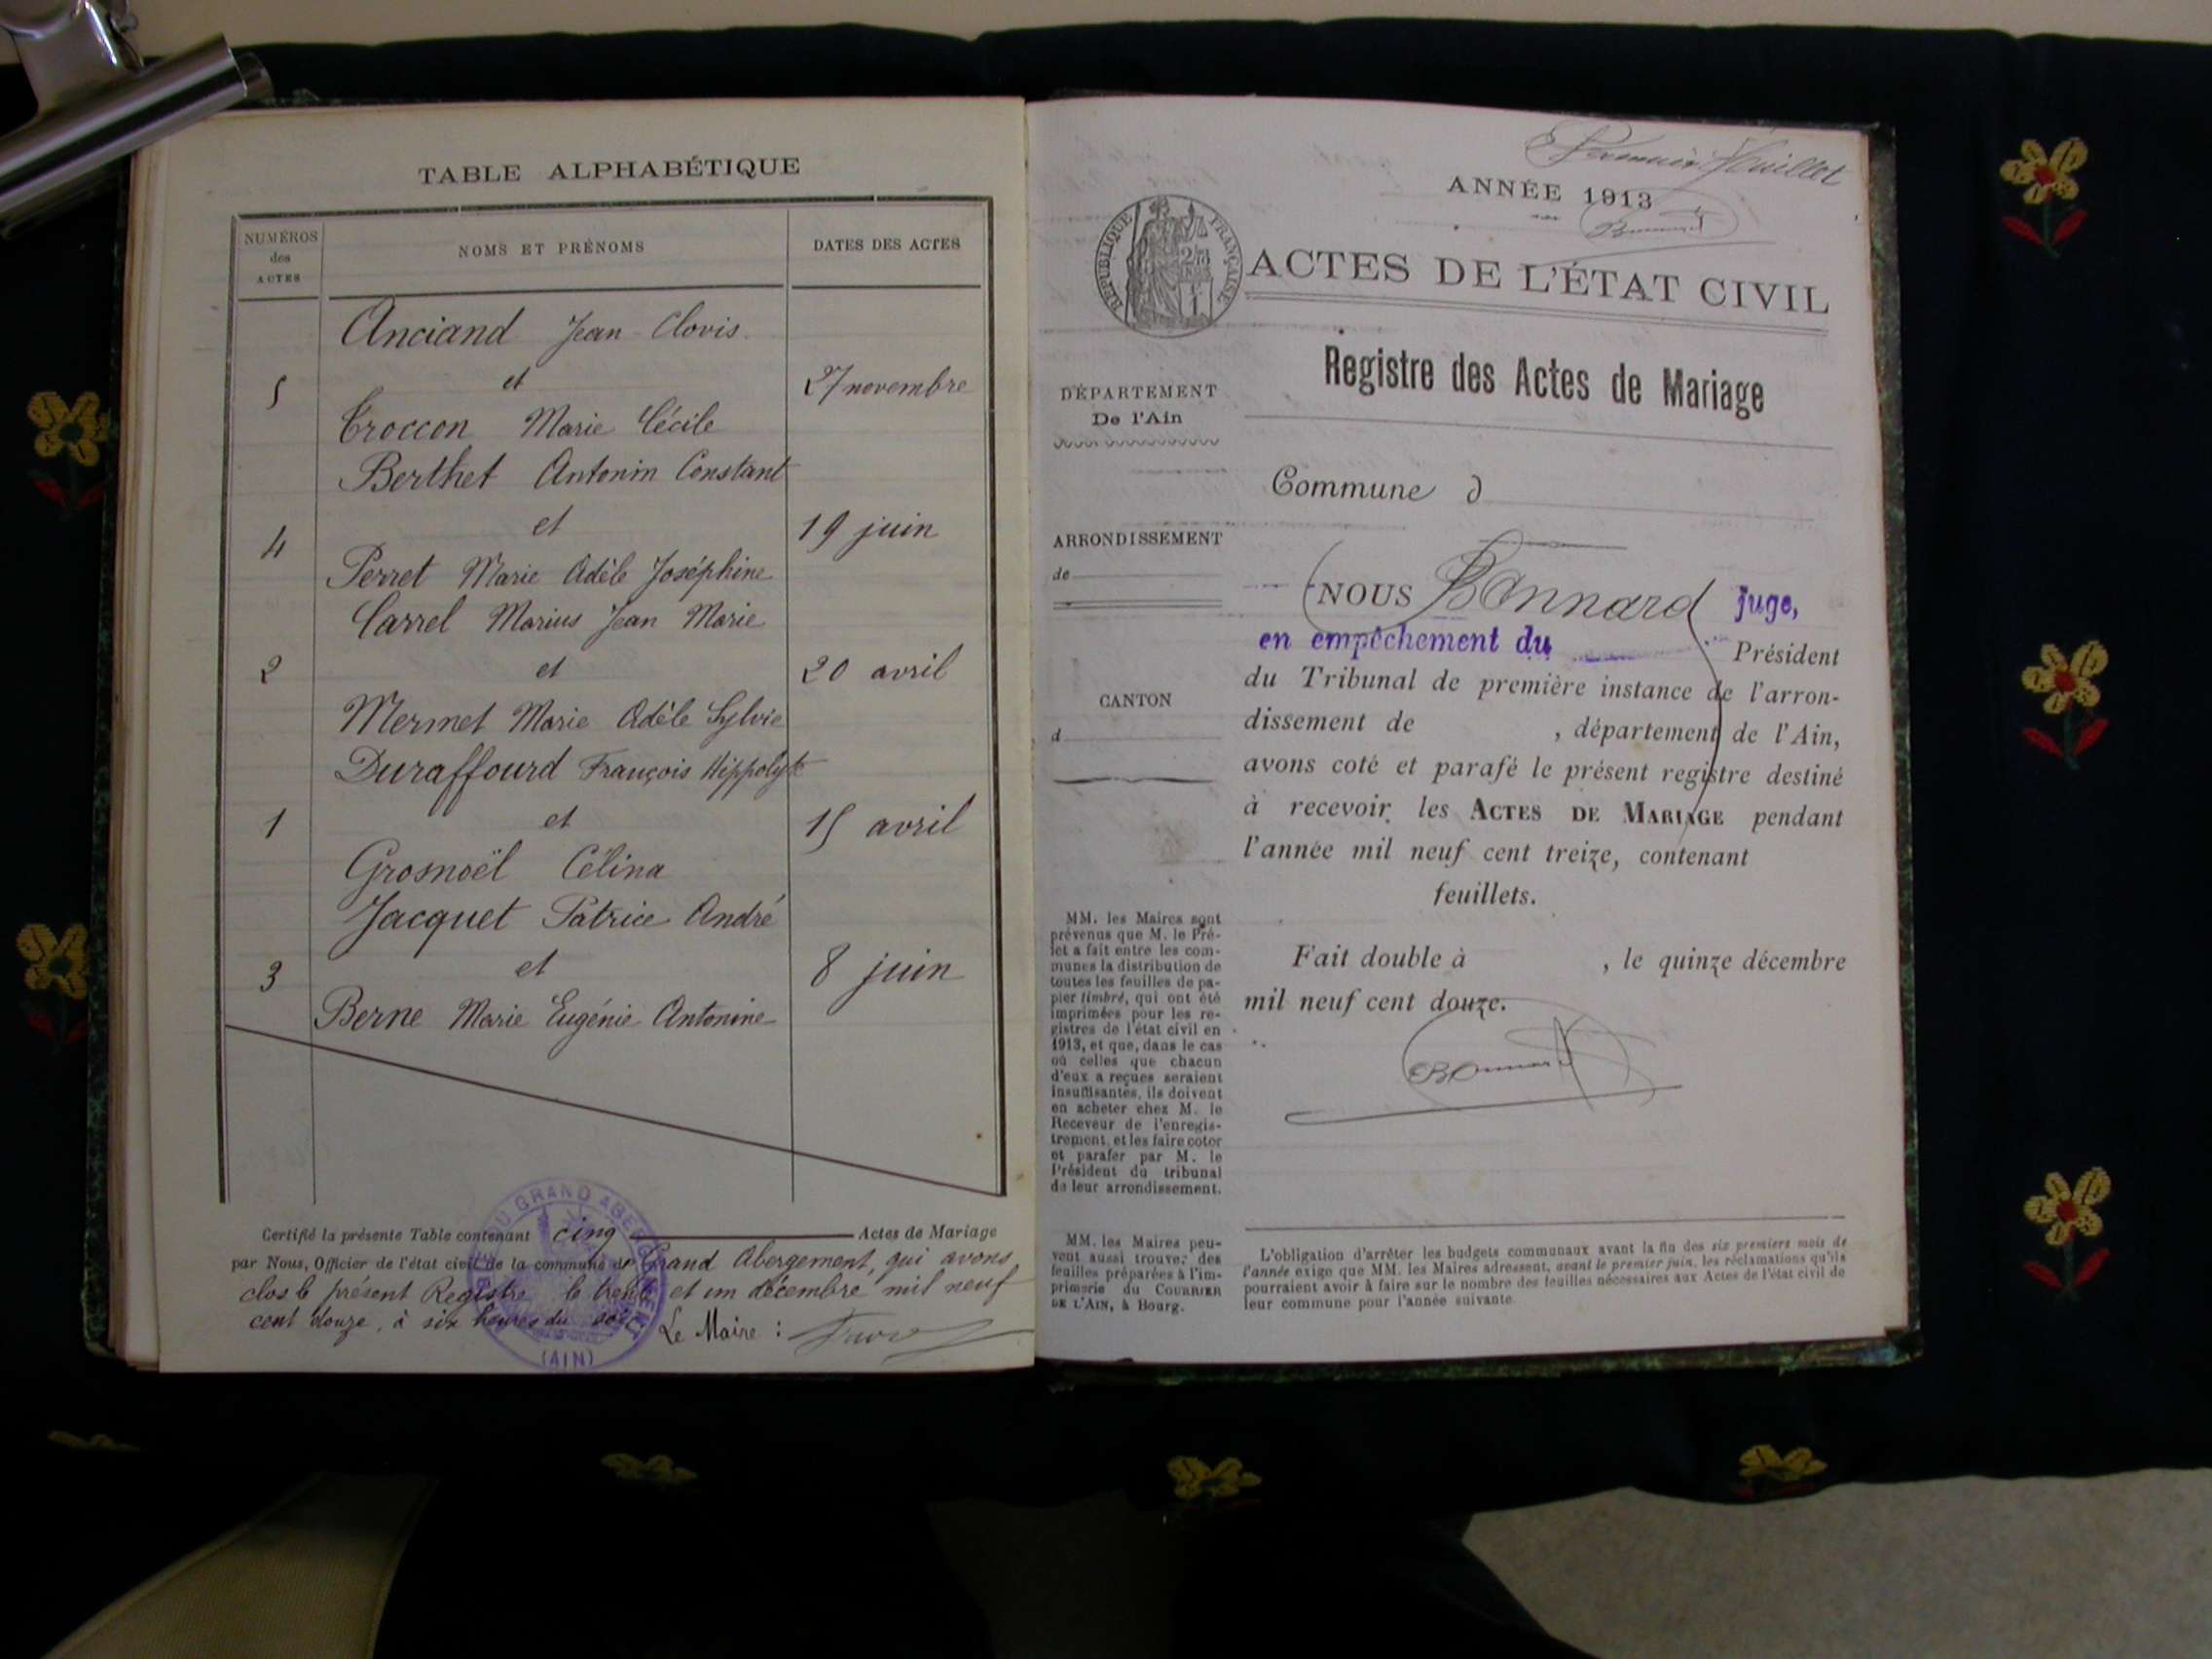 TABLE ALPHABÉTIQUE
NUMÉROS
des
ACTES
NOMS ET PRÉNOMS
DATES DES ACTES
Anciand Jean-Clovis
5 et 27 novembre
Troccon Marie Cécile
Berthet Antonin Constant
4 et 19 juin
Perret Marie Adèle Joséphine
Carrel Marius Jean Marie
2 et 20 avril
Mermet Marie Adèle Sylvie
Duraffourd François Hippolyte
1 et 15 avril
Grosnoël Célina
Jacquet Patrice André
3 et 8 juin
Berne Marie Eugénie Antonine
Certifié la présente Table contenant cinq Actes de Mariage
par Nous, Officier de l'état civil de la commune de Grand Abergement, qui avons
clos le présent Registre le trente et un décembre mil neuf
cent douze, à six heures du soir
Le Maire :
DU GRAND ABERGEMENT
(AIN)
Premier Feuillet
ANNÉE 1913
RÉPUBLIQUE FRANÇAISE
ACTES DE L'ÉTAT CIVIL
Registre des Actes de Mariage
DÉPARTEMENT
De l'Ain
Commune d
ARRONDISSEMENT
de
CANTON
d
NOUS Bonnard juge,
en empêchement du Président
du Tribunal de première instance de l'arron-
dissement de , département de l'Ain,
avons coté et parafé le présent registre destiné
à recevoir les ACTES DE MARIAGE pendant
l'année mil neuf cent treize, contenant
feuillets.
Fait double à , le quinze décembre
mil neuf cent douze.
Bonnard
MM. les Maires sont
prévenus que M. le Pré-
fet a fait entre les com-
munes la distribution de
toutes les feuilles de pa-
pier timbré, qui ont été
imprimées pour les re-
gistres de l'état civil en
1913, et que, dans le cas
où celles que chacun
d'eux a reçues seraient
insuffisantes, ils doivent
en acheter chez M. le
Receveur de l'enregis-
trement, et les faire coter
et parafer par M. le
Président du tribunal
de leur arrondissement.
MM. les Maires peu-
vent aussi trouver des
feuilles préparées à l'im-
primerie du COURRIER
DE L'AIN, à Bourg.
L'obligation d'arrêter les budgets communaux avant la fin des six premiers mois de
l'année exige que MM. les Maires adressent, avant le premier juin, les réclamations qu'ils
pourraient avoir à faire sur le nombre des feuilles nécessaires aux Actes de l'état civil de
leur commune pour l'année suivante.